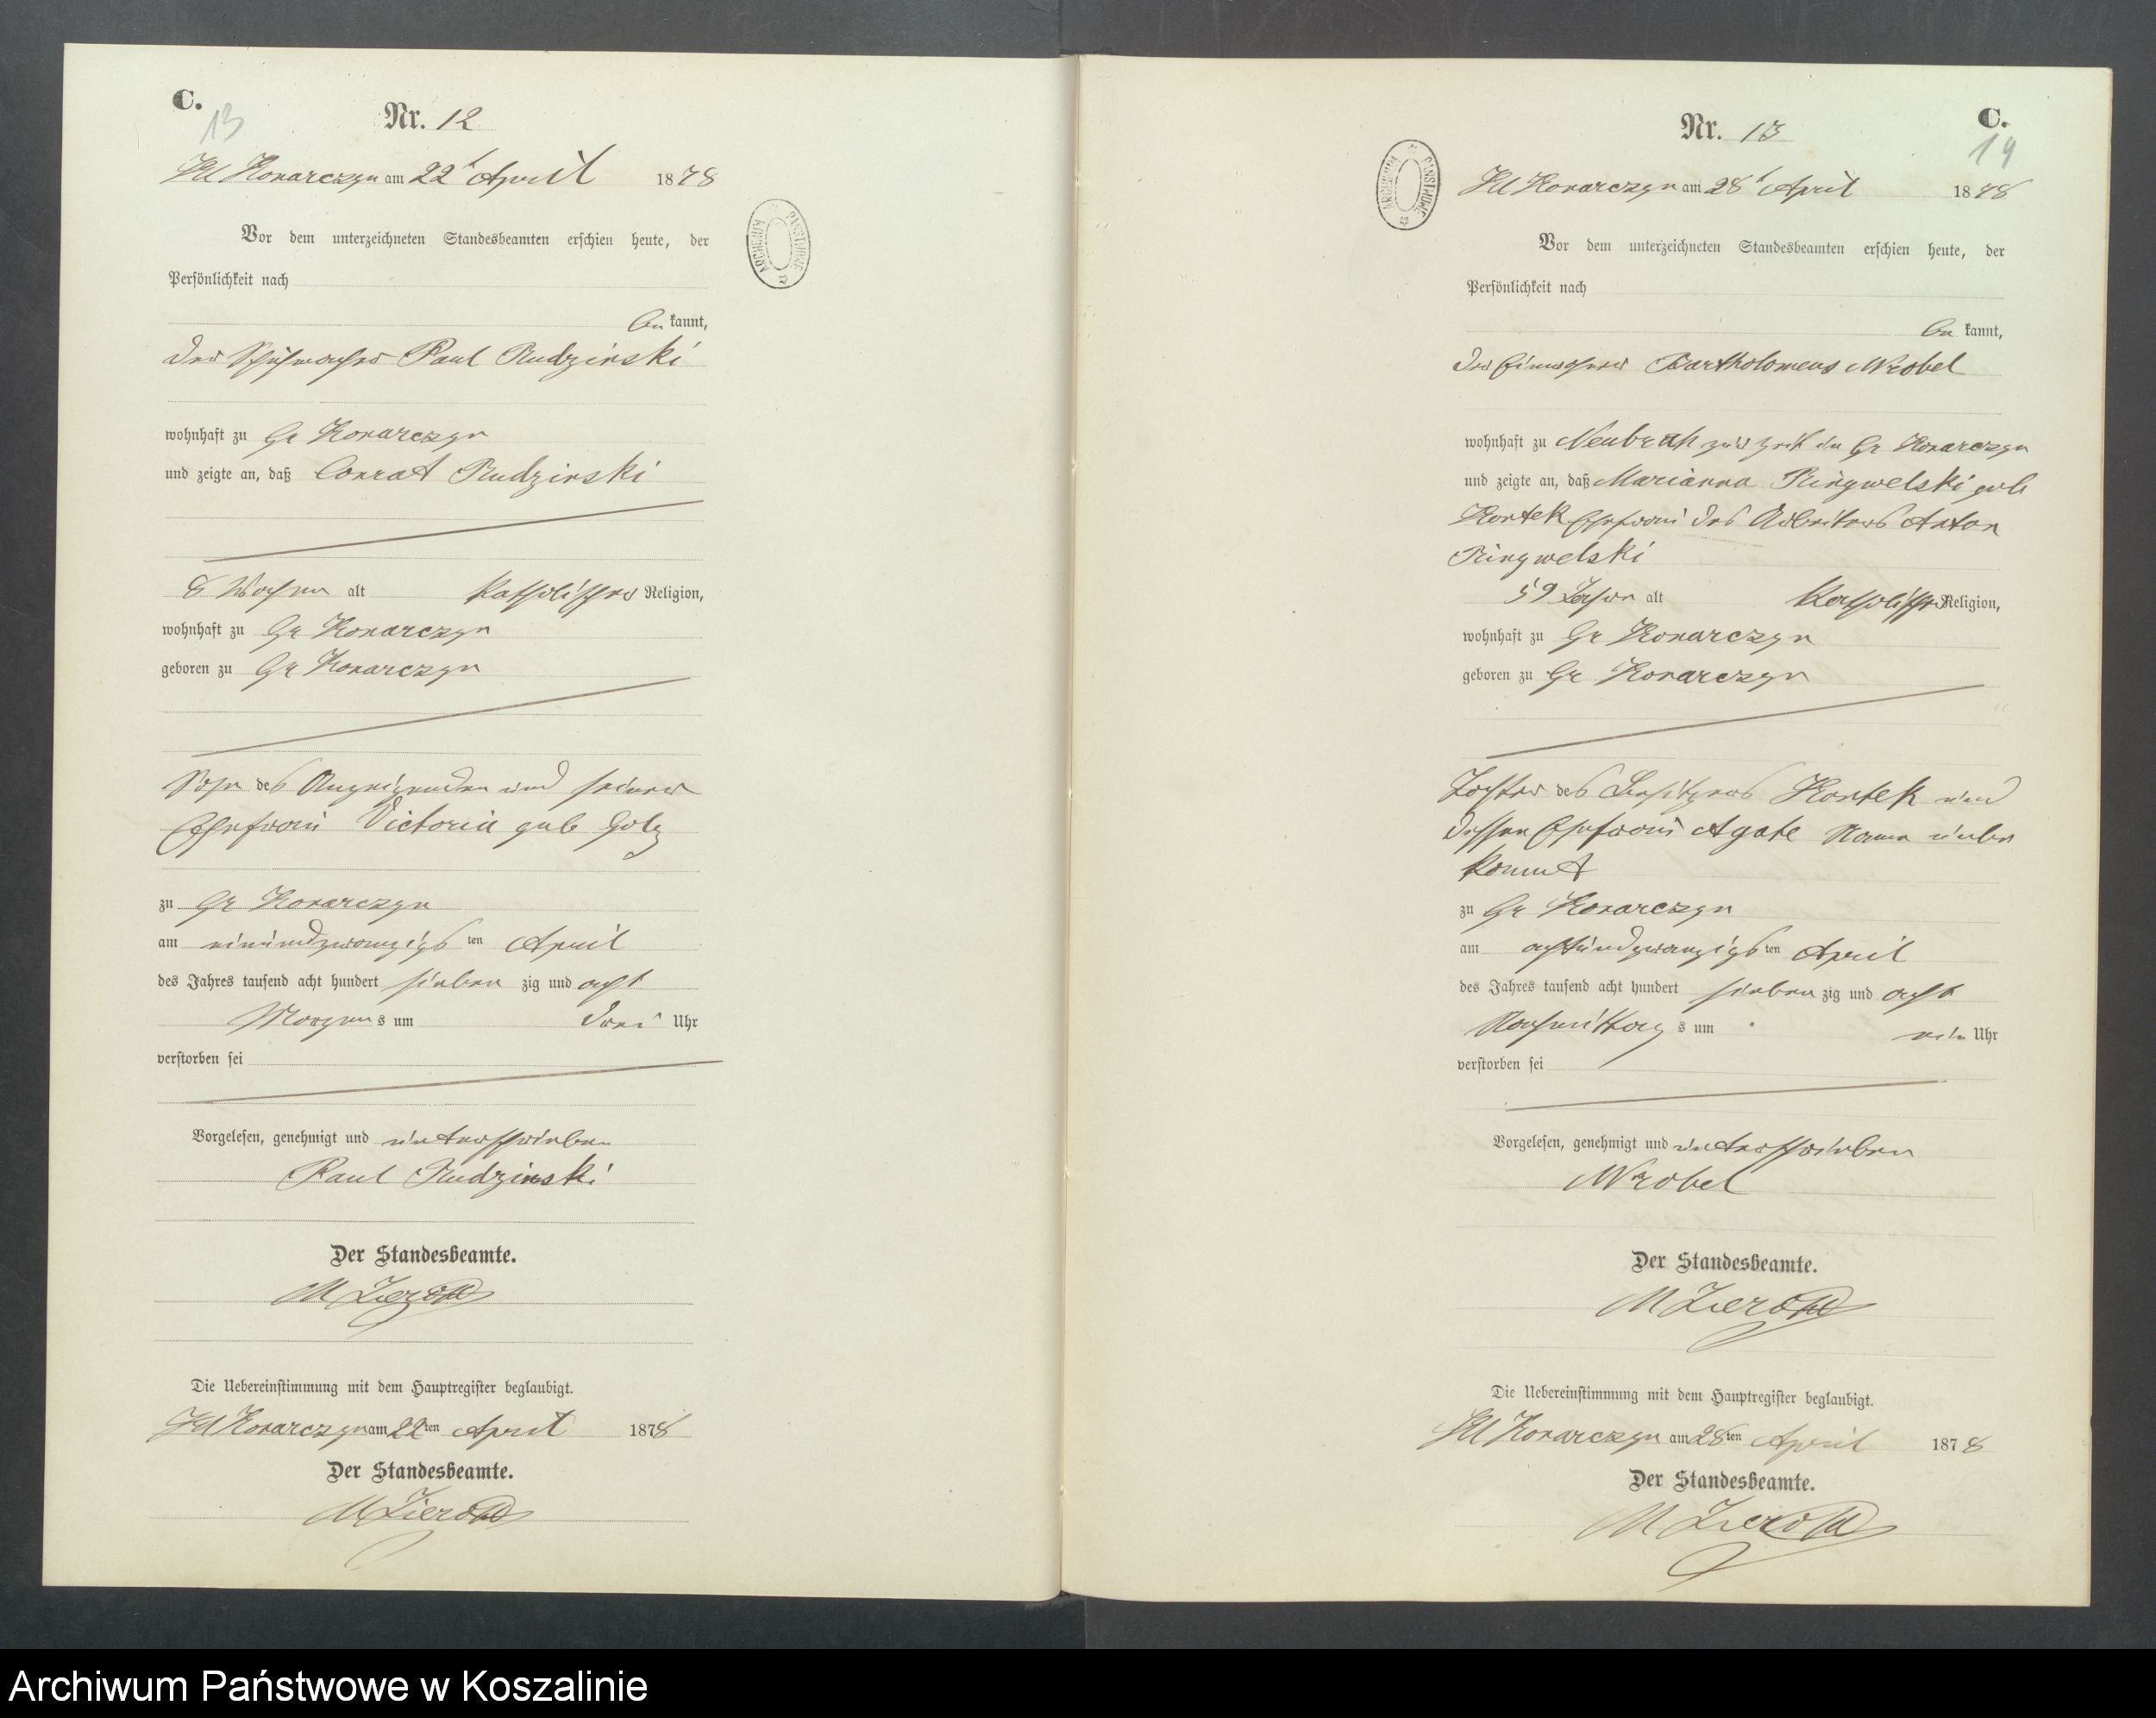 C.
13
Nr. 12
Kl Konarczyn am 22t April 1878
Vor dem unterzeichneten Standesbeamten erschien heute, der
Persönlichkeit nach
be kannt,
der Schuhmacher Paul Rudzinski
wohnhaft zu Gr Konarczyn
und zeigte an, daß Conrat Rudzinski
6 Wochen alt katholischer Religion,
wohnhaft zu Gr Konarczyn
geboren zu Gr Konarczyn
Sohn des Anzeigenden und seiner
Ehefrau Victoria geb Golz
zu Gr Konarczyn
am einundzwanzigs ten April
des Jahres tausend acht hundert sieben zig und acht
Morgen s um drei Uhr
verstorben sei
Vorgelesen, genehmigt und unterschrieben
Paul Rudzinski
Der Standesbeamte.
Die Uebereinstimmung mit dem Hauptregister beglaubigt.
Kl Konarczyn am 22ten April 1878
Der Standesbeamte.
ARCHIWUM PAŃSTWOWE
C.
14
Nr. 13
Kl Konarczyn am 28t April 1878
Vor dem unterzeichneten Standesbeamten erschien heute, der
Persönlichkeit nach
be kannt,
der Einwohner Bartholomeus Wrobel
wohnhaft zu Neubrah zur Zeit in Gr Konarczyn
und zeigte an, daß Marianna Ringwelski geb
Kortek Ehefrau des Arbeiters Anton
Ringwelski
59 Jahr alt katholischer Religion,
wohnhaft zu Gr Konarczyn
geboren zu Gr Konarczyn
Tochter des Besitzers Kortek und
dessen Ehefrau Agate Name unbe
kannt
zu Gr Konarczyn
am achtundzwanzigs ten April
des Jahres tausend acht hundert sieben zig und acht
Nachmittag s um ein Uhr
verstorben sei
Vorgelesen, genehmigt und unterschrieben
Wrobel
Der Standesbeamte.
Die Uebereinstimmung mit dem Hauptregister beglaubigt.
Kl Konarczyn am 28ten April 1878
Der Standesbeamte.
ARCHIWUM PAŃSTWOWE
Archiwum Państwowe w Koszalinie